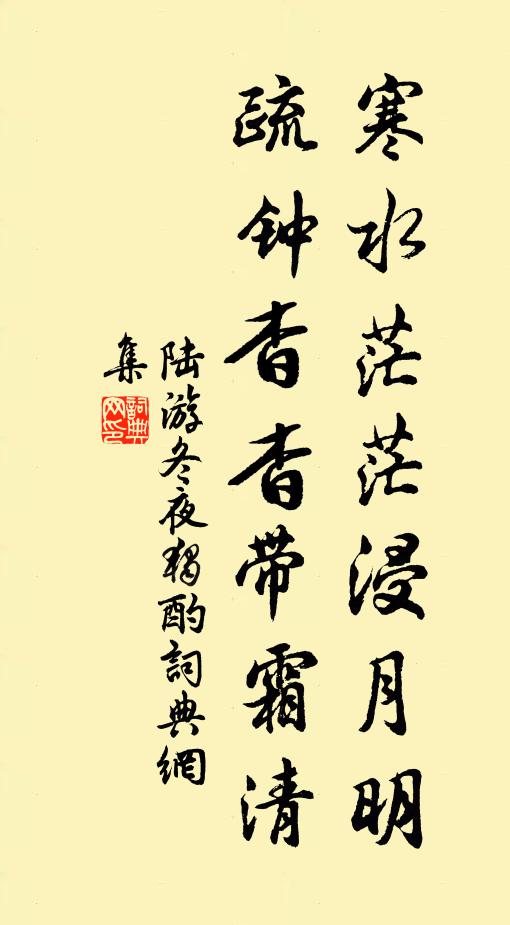 寒水茫茫浸月明
疏钟杳杳带霜清
陆游冬夜独酌詞典網
集
詞典網印